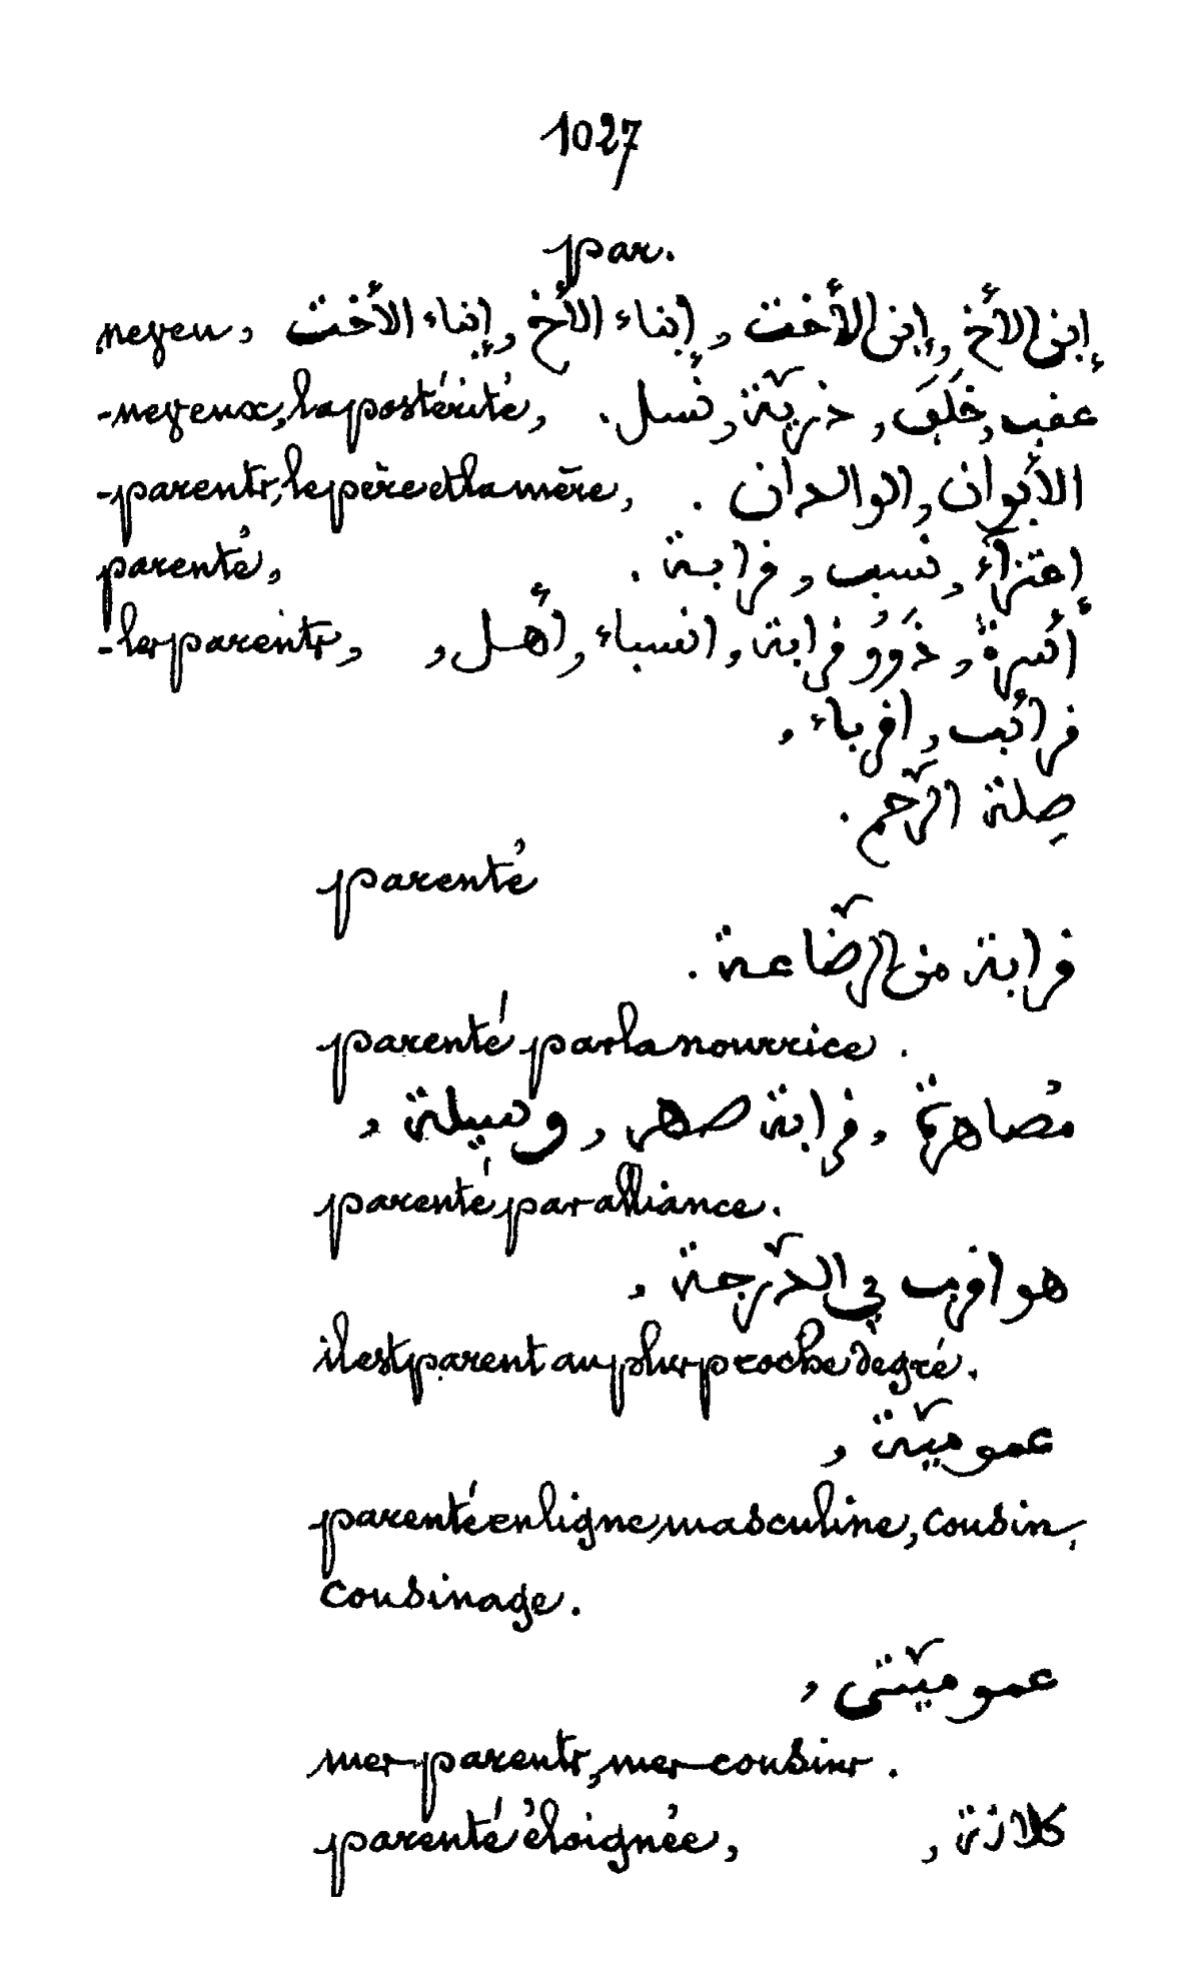 1027
par.
neveu, إبن الأخ, إبن الأخت, إبناء الأخ, إبناء الأخت
-neveux, la postérité, عقب, خَلَف, ذريّة, نسل.
-parents, le père et la mère, الأبوان, الوالدان.
parenté, إعتزآء, نسب, قرابة.
-les parents, أُسرةٌ, ذَوُو قرابة, انسباء, أهل,
قرائب, اقرباء,
صِلة الرّحم.
parenté
قرابة من الرّضاعة.
parenté par la nourrice.
مُصاهرة, قرابة صهر, وسيلة,
parenté par alliance.
هو اقرب في الدّرجة,
il est parent au plus proche degré.
عموميّة,
parenté en ligne masculine, cousin,
cousinage.
عموميّتى,
mes parents, mes cousins.
parenté éloignée, كلالة,